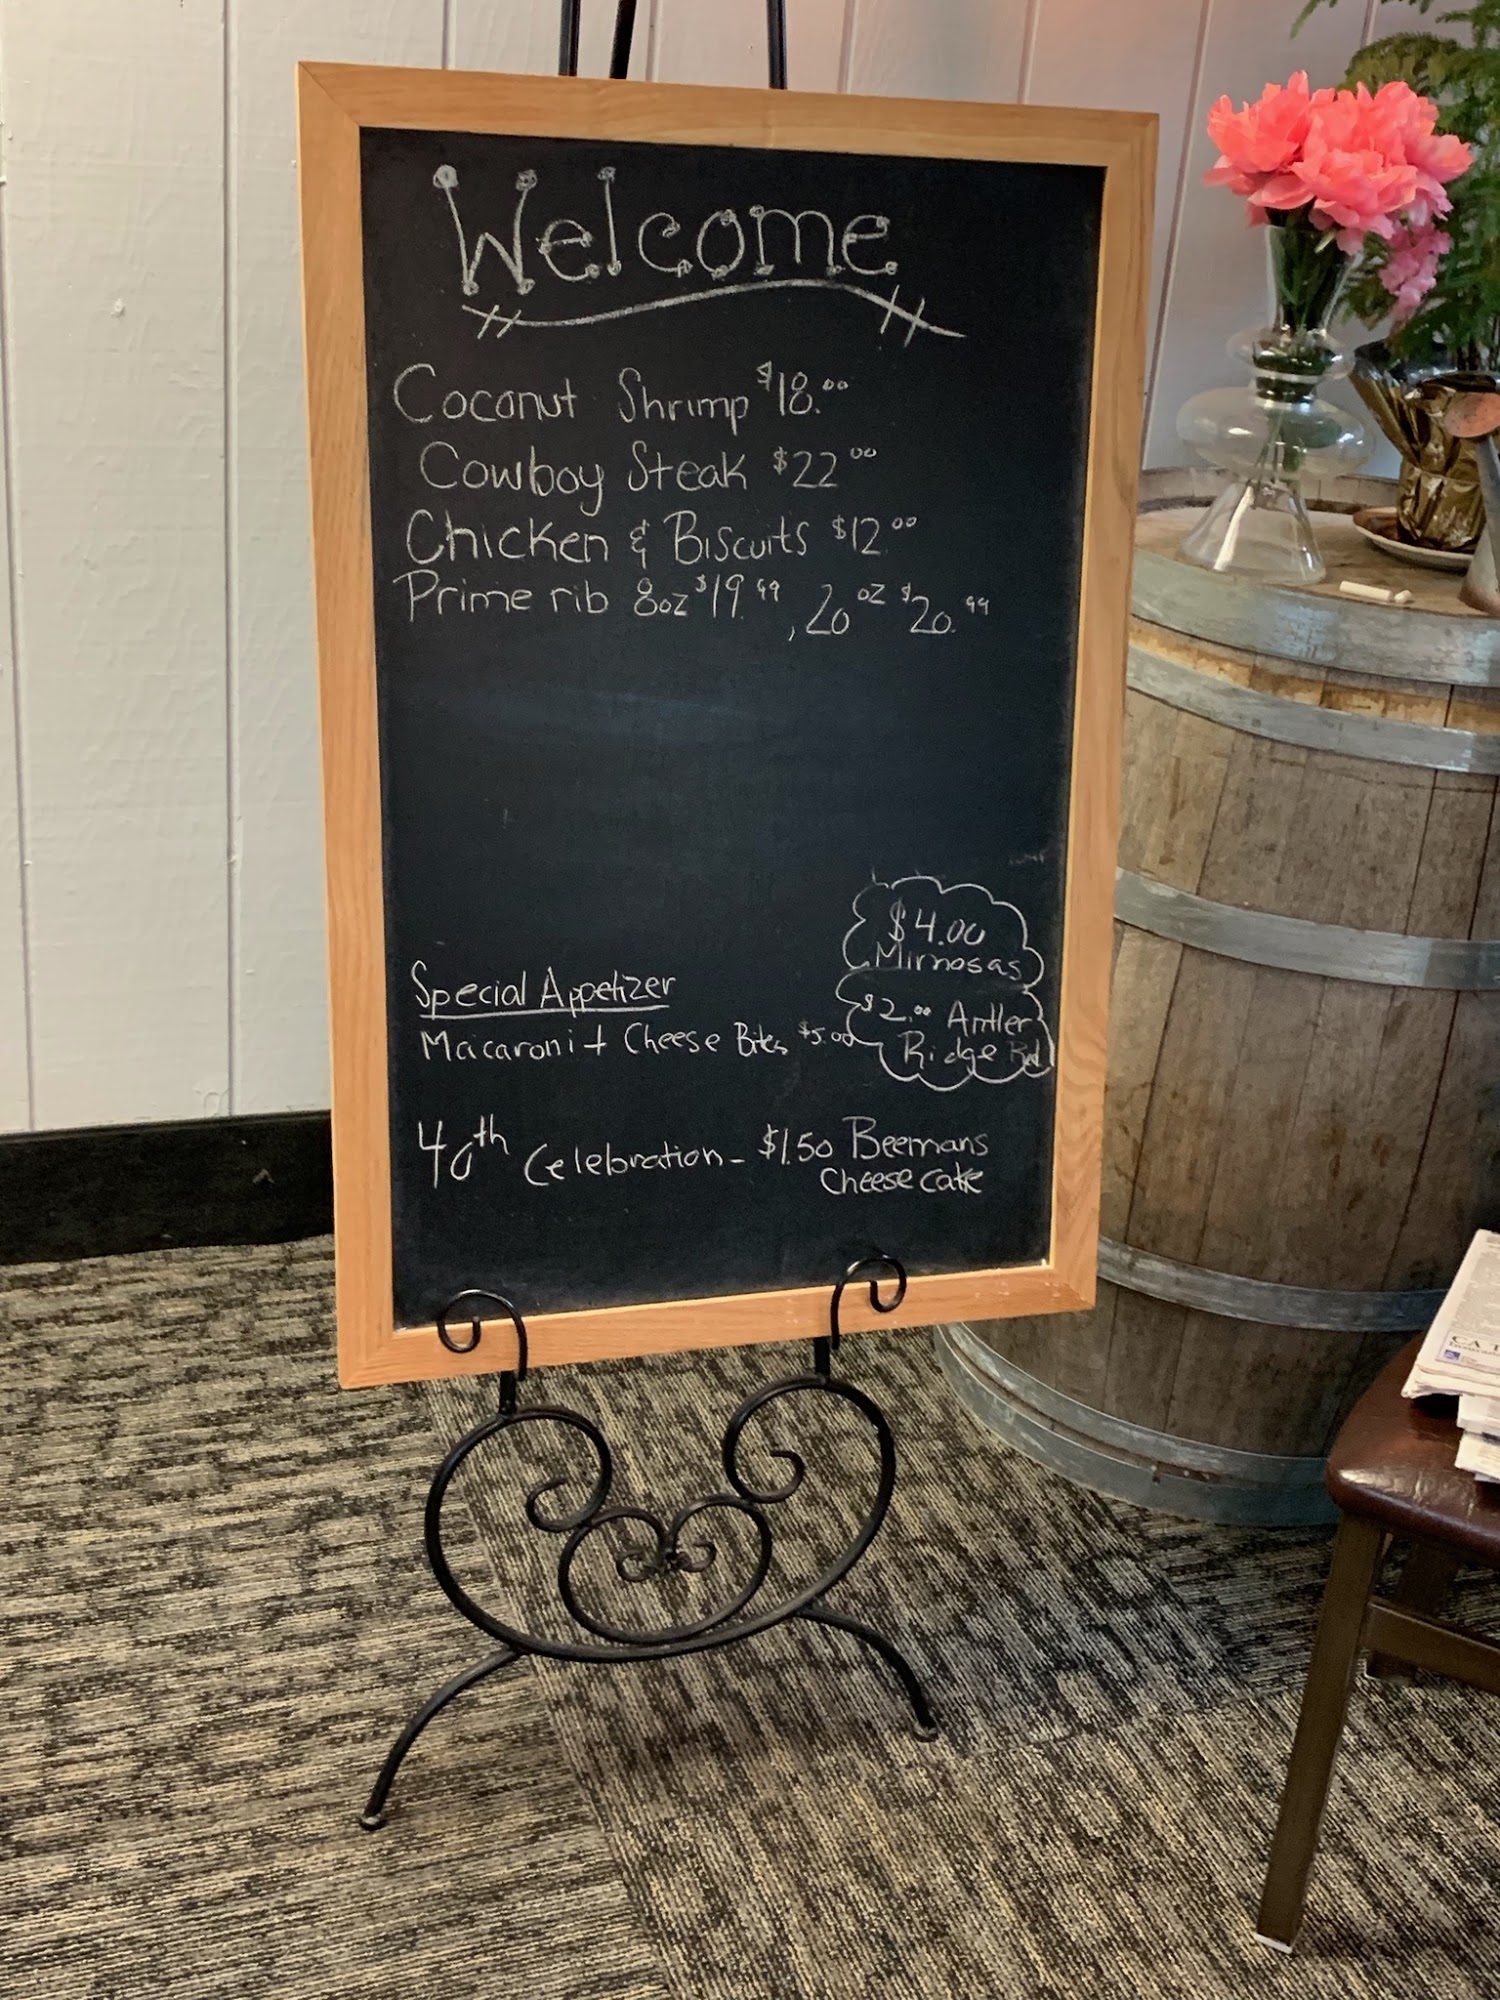 Welcome
Coconut Shrimp $18.00
Cowboy Steak $22 00
Chicken & Biscuits $12 00
Prime rib 8oz $19.99, 20 oz $20.99
$4.00
Mimosas
$2.00 Antler
Ridge Red
Special Appetizer
Macaroni + Cheese Bites $5.00
40th Celebration - $1.50 Beemans
Cheesecake